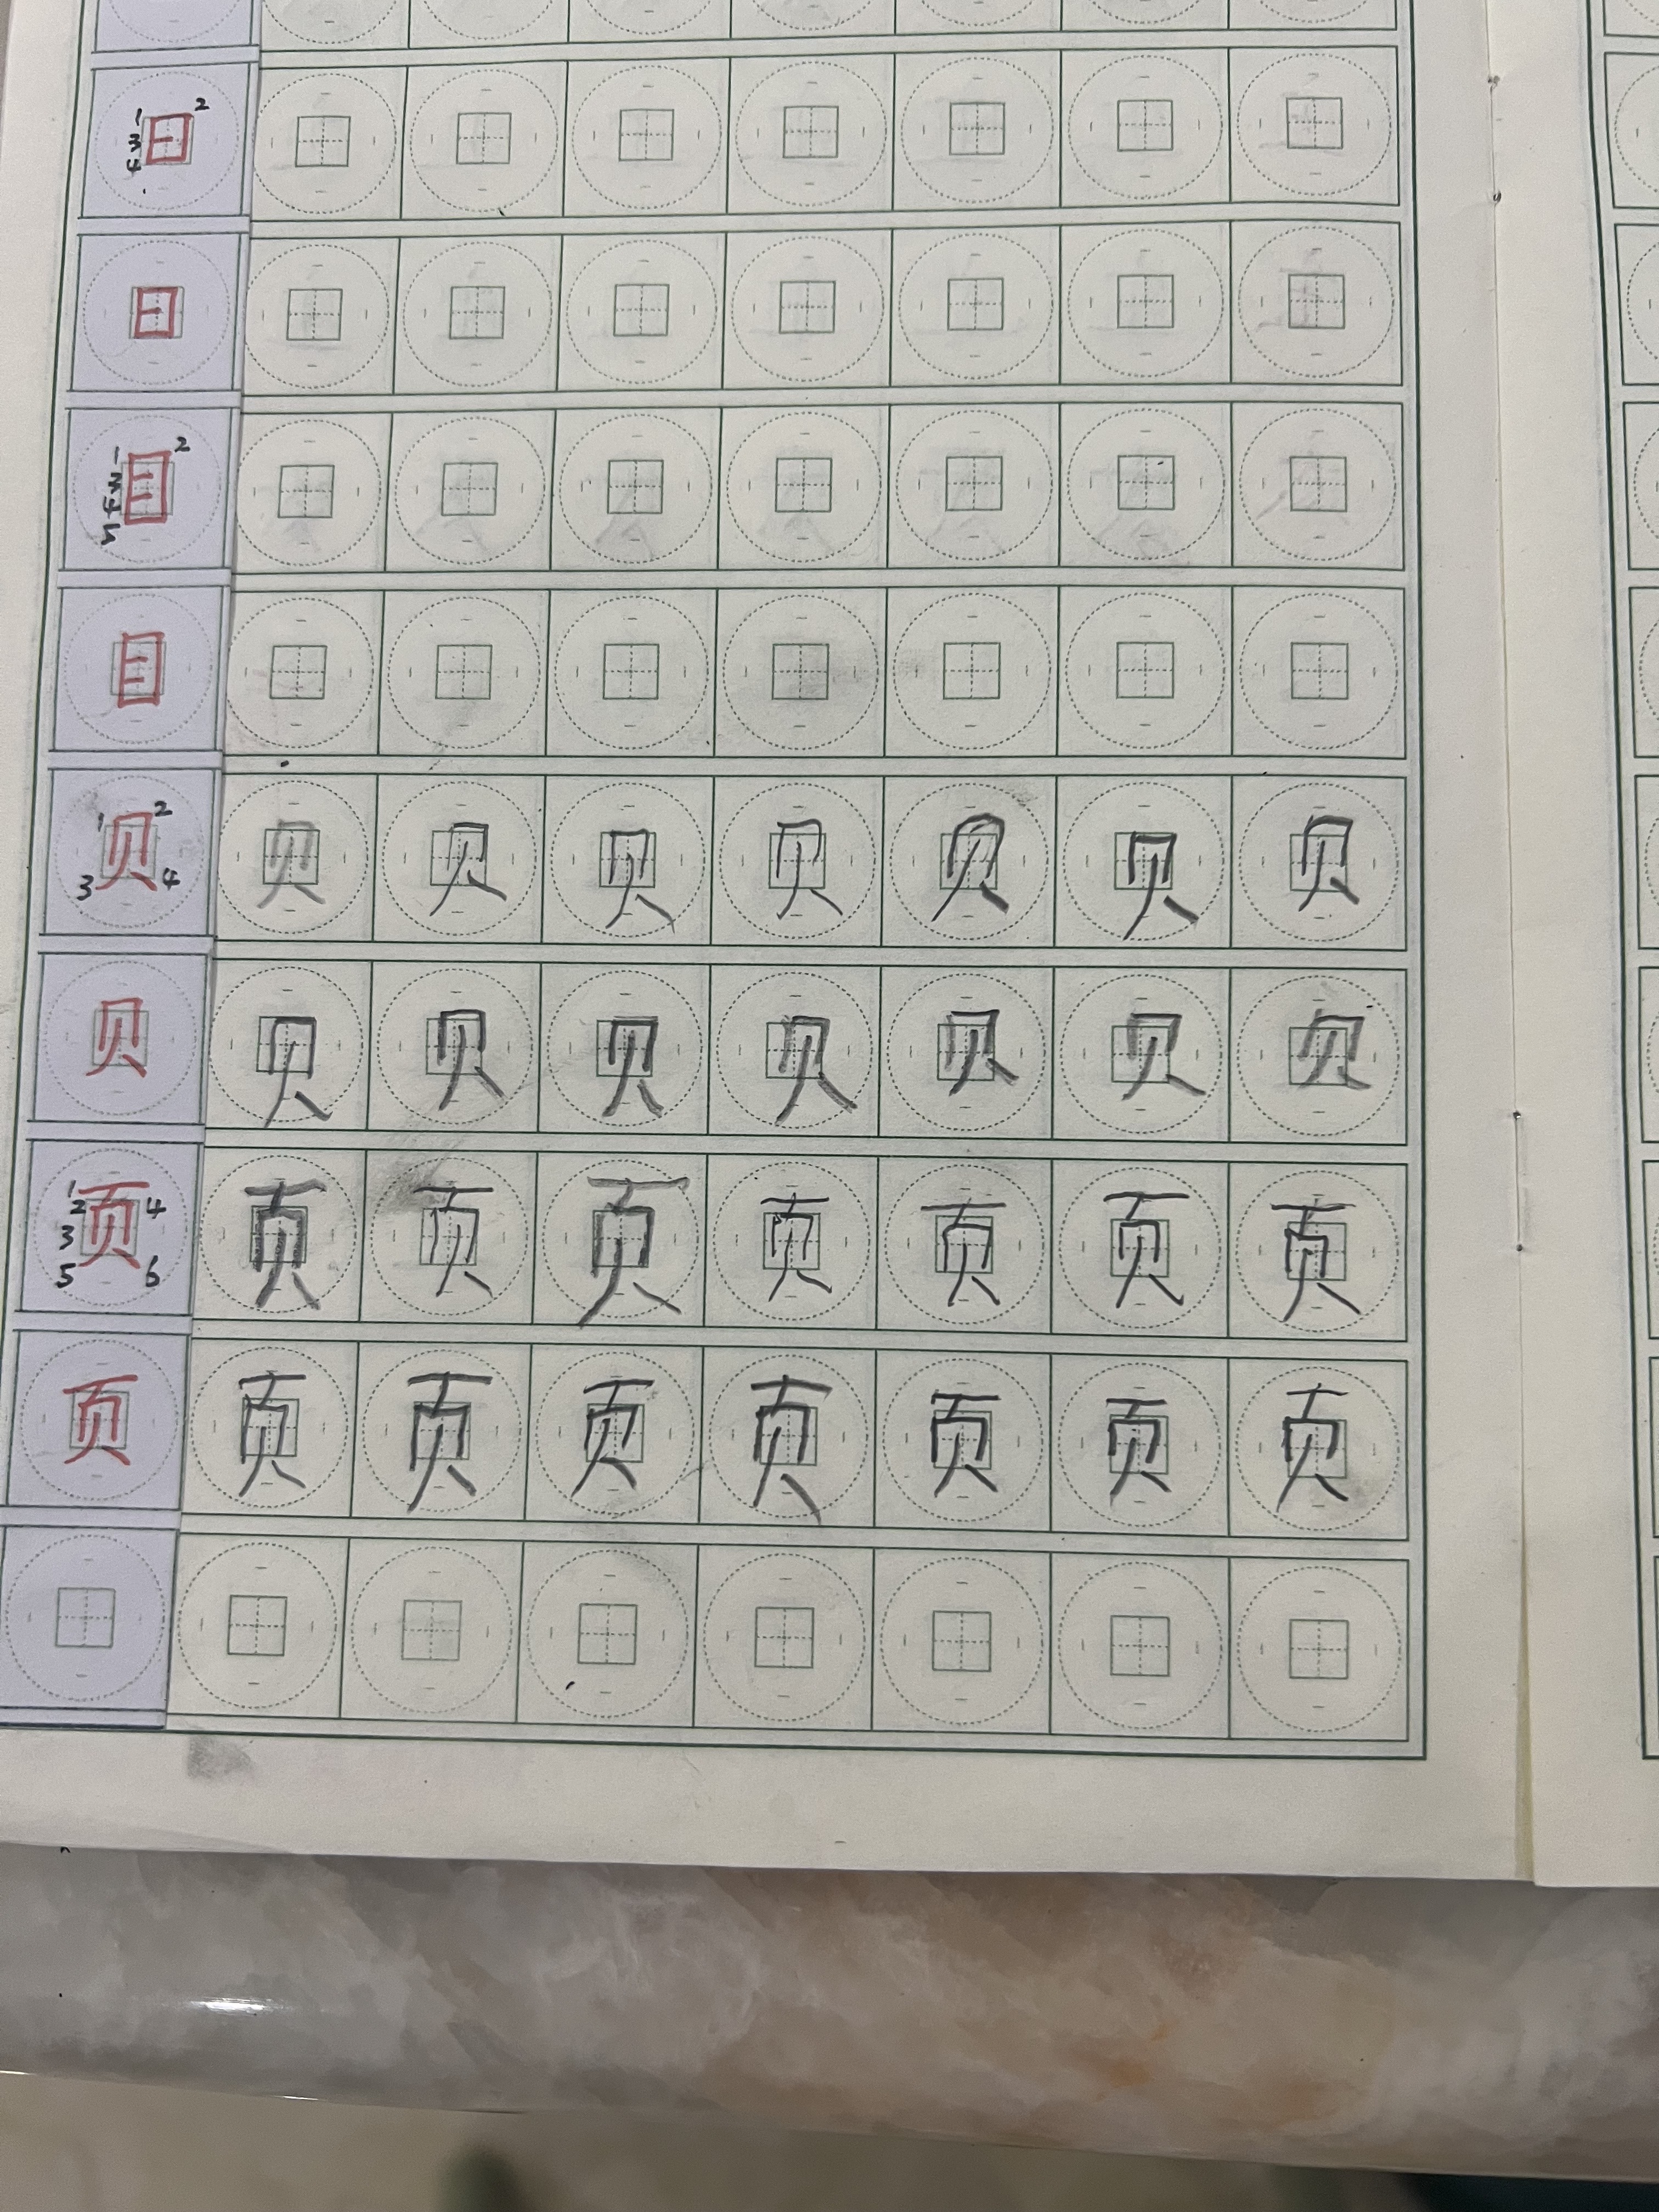 日 1 2 3 4
日
目 1 2 3 4 5
目
贝 1 2 3 4 贝 贝 贝 贝 贝 贝 贝
贝 贝 贝 贝 贝 贝 贝 贝
页 1 2 3 4 5 6 页 页 页 页 页 页 页
页 页 页 页 页 页 页 页